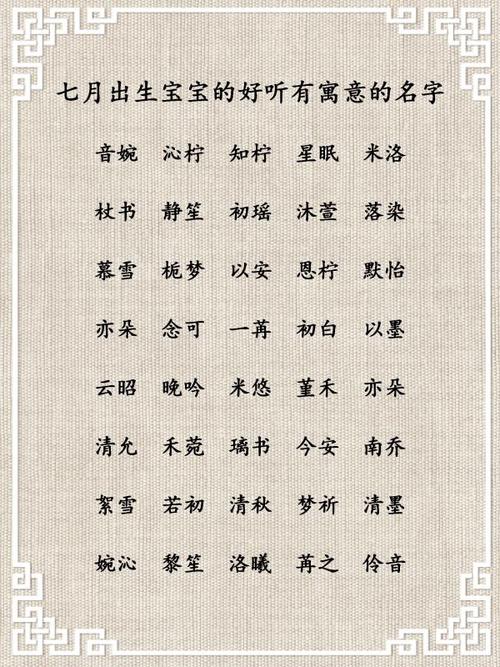 七月出生宝宝的好听有寓意的名字
音婉 沁柠 知柠 星眠 米洛
杖书 静笙 初瑶 沐萱 落染
慕雪 栀梦 以安 恩柠 默怡
亦朵 念可 一苒 初白 以墨
云昭 晚吟 米悠 堇禾 亦朵
清允 禾菀 璃书 今安 南乔
絮雪 若初 清秋 梦祈 清墨
婉沁 黎笙 洛曦 苒之 伶音